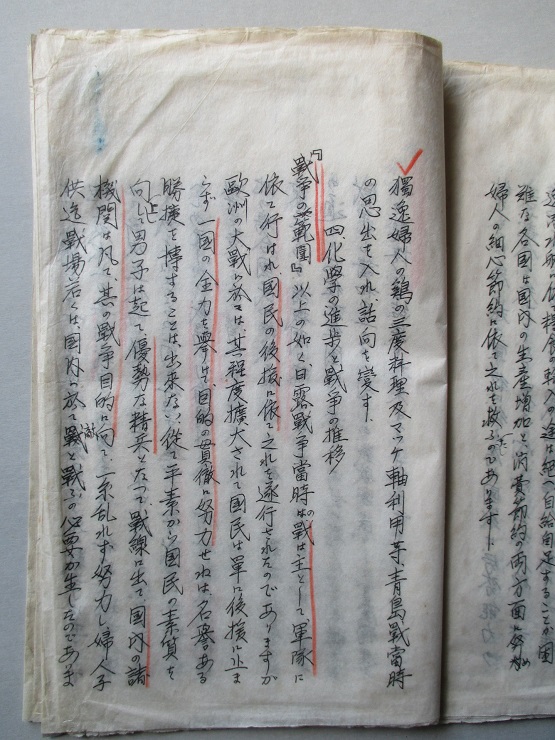 途は絶へ自給自足することが困
難な各国は国内の生産増加と消費節約の両方面に努め
婦人の細心節約に依て之れを救ふのであります
獨逸婦人の鶏の三度料理及マッチ軸利用等青島戰當時
の思出を入れ、話向を変す、
四化學の進歩と戰争の推移
『戰争の範圍』以上の如く日露戰争當時の戰は主として軍隊に
依て行はれ国民の後援に依て之れを遂行されたのでありますが
歐洲の大戰に於ては、其程度擴大されて国民は單に後援に止ま
らず国の全力を擧げて目的の貫徹に努力せねば、名譽ある
勝捷を博することは出来ない、従て平素から国民の素質を
向上し男子は起て優勢な精兵となって戰線に出て国内の諸
機関は凡て其の戰争目的に向て一糸乱れず努力し婦人子
供迄戰場若くは国内に於て職と戰ふの必要か生したのであ